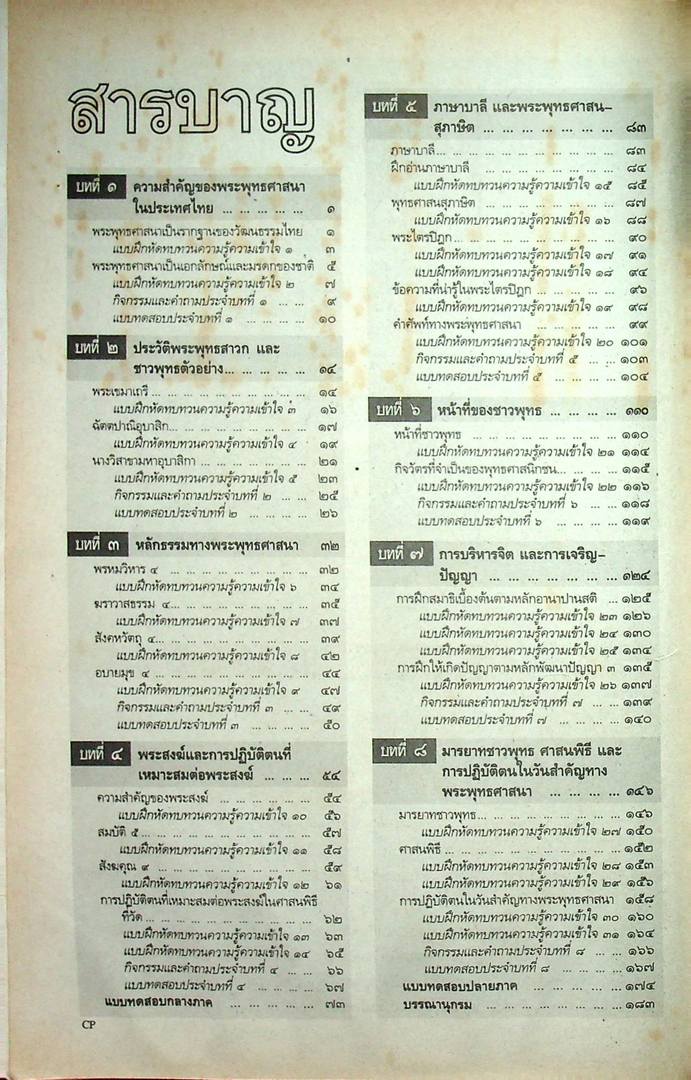 สารบาญ
บทที่ ๑ ความสำคัญของพระพุทธศาสนา
ในประเทศไทย ... ... ... ... ... ๑
พระพุทธศาสนาเป็นรากฐานของวัฒนธรรมไทย ๑
แบบฝึกหัดทบทวนความรู้ความเข้าใจ ๑ ๓
พระพุทธศาสนาเป็นเอกลักษณ์และมรดกของชาติ ๕
แบบฝึกหัดทบทวนความรู้ความเข้าใจ ๒ ๗
กิจกรรมและคำถามประจำบทที่ ๑ ... ... ๙
แบบทดสอบประจำบทที่ ๑ ... ... ... ... ๑๐
บทที่ ๒ ประวัติพระพุทธสาวก และ
ชาวพุทธตัวอย่าง... ... ... ... ... ๑๔
พระเขมาเถรี ... ... ... ... ... ... ... ... ๑๔
แบบฝึกหัดทบทวนความรู้ความเข้าใจ ๓ ๑๖
ฉัตตปาณิอุบาสิก... ... ... ... ... ... ... ... ๑๗
แบบฝึกหัดทบทวนความรู้ความเข้าใจ ๔ ๑๙
นางวิสาขามหาอุบาสิกา ... ... ... ... ... ... ๒๑
แบบฝึกหัดทบทวนความรู้ความเข้าใจ ๕ ๒๓
กิจกรรมและคำถามประจำบทที่ ๒ ... ... ๒๕
แบบทดสอบประจำบทที่ ๒ ... ... ... ... ๒๖
บทที่ ๓ หลักธรรมทางพระพุทธศาสนา ๓๒
พรหมวิหาร ๔ ... ... ... ... ... ... ... ... ๓๒
แบบฝึกหัดทบทวนความรู้ความเข้าใจ ๖ ๓๔
ฆราวาสธรรม ๔... ... ... ... ... ... ... ... ๓๕
แบบฝึกหัดทบทวนความรู้ความเข้าใจ ๗ ๓๗
สังคหวัตถุ ๔... ... ... ... ... ... ... ... ๓๙
แบบฝึกหัดทบทวนความรู้ความเข้าใจ ๘ ๔๒
อบายมุข ๔ ... ... ... ... ... ... ... ... ๔๔
แบบฝึกหัดทบทวนความรู้ความเข้าใจ ๙ ๔๗
กิจกรรมและคำถามประจำบทที่ ๓ ... ... ๔๙
แบบทดสอบประจำบทที่ ๓ ... ... ... ... ๕๐
บทที่ ๔ พระสงฆ์และการปฏิบัติตนที่
เหมาะสมต่อพระสงฆ์ ... ... ... ๕๔
ความสำคัญของพระสงฆ์ ... ... ... ... ... ๕๔
แบบฝึกหัดทบทวนความรู้ความเข้าใจ ๑๐ ๕๖
สมบัติ ๕... ... ... ... ... ... ... ... ... ๕๗
แบบฝึกหัดทบทวนความรู้ความเข้าใจ ๑๑ ๕๘
สังฆคุณ ๙ ... ... ... ... ... ... ... ... ๕๙
แบบฝึกหัดทบทวนความรู้ความเข้าใจ ๑๒ ๖๑
การปฏิบัติตนที่เหมาะสมต่อพระสงฆ์ในศาสนพิธี
ที่วัด ... ... ... ... ... ... ... ... ... ๖๒
แบบฝึกหัดทบทวนความรู้ความเข้าใจ ๑๓ ๖๓
แบบฝึกหัดทบทวนความรู้ความเข้าใจ ๑๔ ๖๕
กิจกรรมและคำถามประจำบทที่ ๔ ... ... ๖๖
แบบทดสอบประจำบทที่ ๔ ... ... ... ... ๖๗
แบบทดสอบกลางภาค ... ... ... ... ๗๓
CP
บทที่ ๕ ภาษาบาลี และพระพุทธศาสน-
สุภาษิต ... ... ... ... ... ... ... ๘๓
ภาษาบาลี... ... ... ... ... ... ... ... ... ๘๓
ฝึกอ่านภาษาบาลี ... ... ... ... ... ... ... ๘๔
แบบฝึกหัดทบทวนความรู้ความเข้าใจ ๑๕ ๘๕
พุทธศาสนสุภาษิต ... ... ... ... ... ... ... ๘๗
แบบฝึกหัดทบทวนความรู้ความเข้าใจ ๑๖ ๘๘
พระไตรปิฎก... ... ... ... ... ... ... ... ๙๐
แบบฝึกหัดทบทวนความรู้ความเข้าใจ ๑๗ ๙๑
แบบฝึกหัดทบทวนความรู้ความเข้าใจ ๑๘ ๙๔
ข้อความที่น่ารู้ในพระไตรปิฎก ... ... ... ... ๙๖
แบบฝึกหัดทบทวนความรู้ความเข้าใจ ๑๙ ๙๘
คำศัพท์ทางพระพุทธศาสนา ... ... ... ... ๙๙
แบบฝึกหัดทบทวนความรู้ความเข้าใจ ๒๐ ๑๐๑
กิจกรรมและคำถามประจำบทที่ ๕ ... ... ๑๐๓
แบบทดสอบประจำบทที่ ๕ ... ... ... ... ๑๐๔
บทที่ ๖ หน้าที่ของชาวพุทธ ... ... ... ... ๑๑๐
หน้าที่ชาวพุทธ ... ... ... ... ... ... ... ๑๑๐
แบบฝึกหัดทบทวนความรู้ความเข้าใจ ๒๑ ๑๑๔
กิจวัตรที่จำเป็นของพุทธศาสนิกชน... ... ... ... ๑๑๕
แบบฝึกหัดทบทวนความรู้ความเข้าใจ ๒๒ ๑๑๖
กิจกรรมและคำถามประจำบทที่ ๖ ... ... ๑๑๘
แบบทดสอบประจำบทที่ ๖ ... ... ... ... ๑๑๙
บทที่ ๗ การบริหารจิต และการเจริญ-
ปัญญา ... ... ... ... ... ... ... ๑๒๔
การฝึกสมาธิเบื้องต้นตามหลักอานาปานสติ ... ๑๒๕
แบบฝึกหัดทบทวนความรู้ความเข้าใจ ๒๓ ๑๒๖
แบบฝึกหัดทบทวนความรู้ความเข้าใจ ๒๔ ๑๓๐
แบบฝึกหัดทบทวนความรู้ความเข้าใจ ๒๕ ๑๓๔
การฝึกให้เกิดปัญญาตามหลักพัฒนาปัญญา ๓ ๑๓๕
แบบฝึกหัดทบทวนความรู้ความเข้าใจ ๒๖ ๑๓๗
กิจกรรมและคำถามประจำบทที่ ๗ ... ... ๑๓๙
แบบทดสอบประจำบทที่ ๗ ... ... ... ... ๑๔๐
บทที่ ๘ มารยาทชาวพุทธ ศาสนพิธี และ
การปฏิบัติตนในวันสำคัญทาง
พระพุทธศาสนา ... ... ... ... ๑๔๖
มารยาทชาวพุทธ... ... ... ... ... ... ... ๑๔๖
แบบฝึกหัดทบทวนความรู้ความเข้าใจ ๒๗ ๑๕๐
ศาสนพิธี ... ... ... ... ... ... ... ... ... ๑๕๒
แบบฝึกหัดทบทวนความรู้ความเข้าใจ ๒๘ ๑๕๓
แบบฝึกหัดทบทวนความรู้ความเข้าใจ ๒๙ ๑๕๖
การปฏิบัติตนในวันสำคัญทางพระพุทธศาสนา ๑๕๘
แบบฝึกหัดทบทวนความรู้ความเข้าใจ ๓๐ ๑๖๐
แบบฝึกหัดทบทวนความรู้ความเข้าใจ ๓๑ ๑๖๔
กิจกรรมและคำถามประจำบทที่ ๘ ... ... ๑๖๖
แบบทดสอบประจำบทที่ ๘ ... ... ... ... ๑๖๗
แบบทดสอบปลายภาค ... ... ... ... ๑๗๔
บรรณานุกรม ... ... ... ... ... ... ๑๘๓